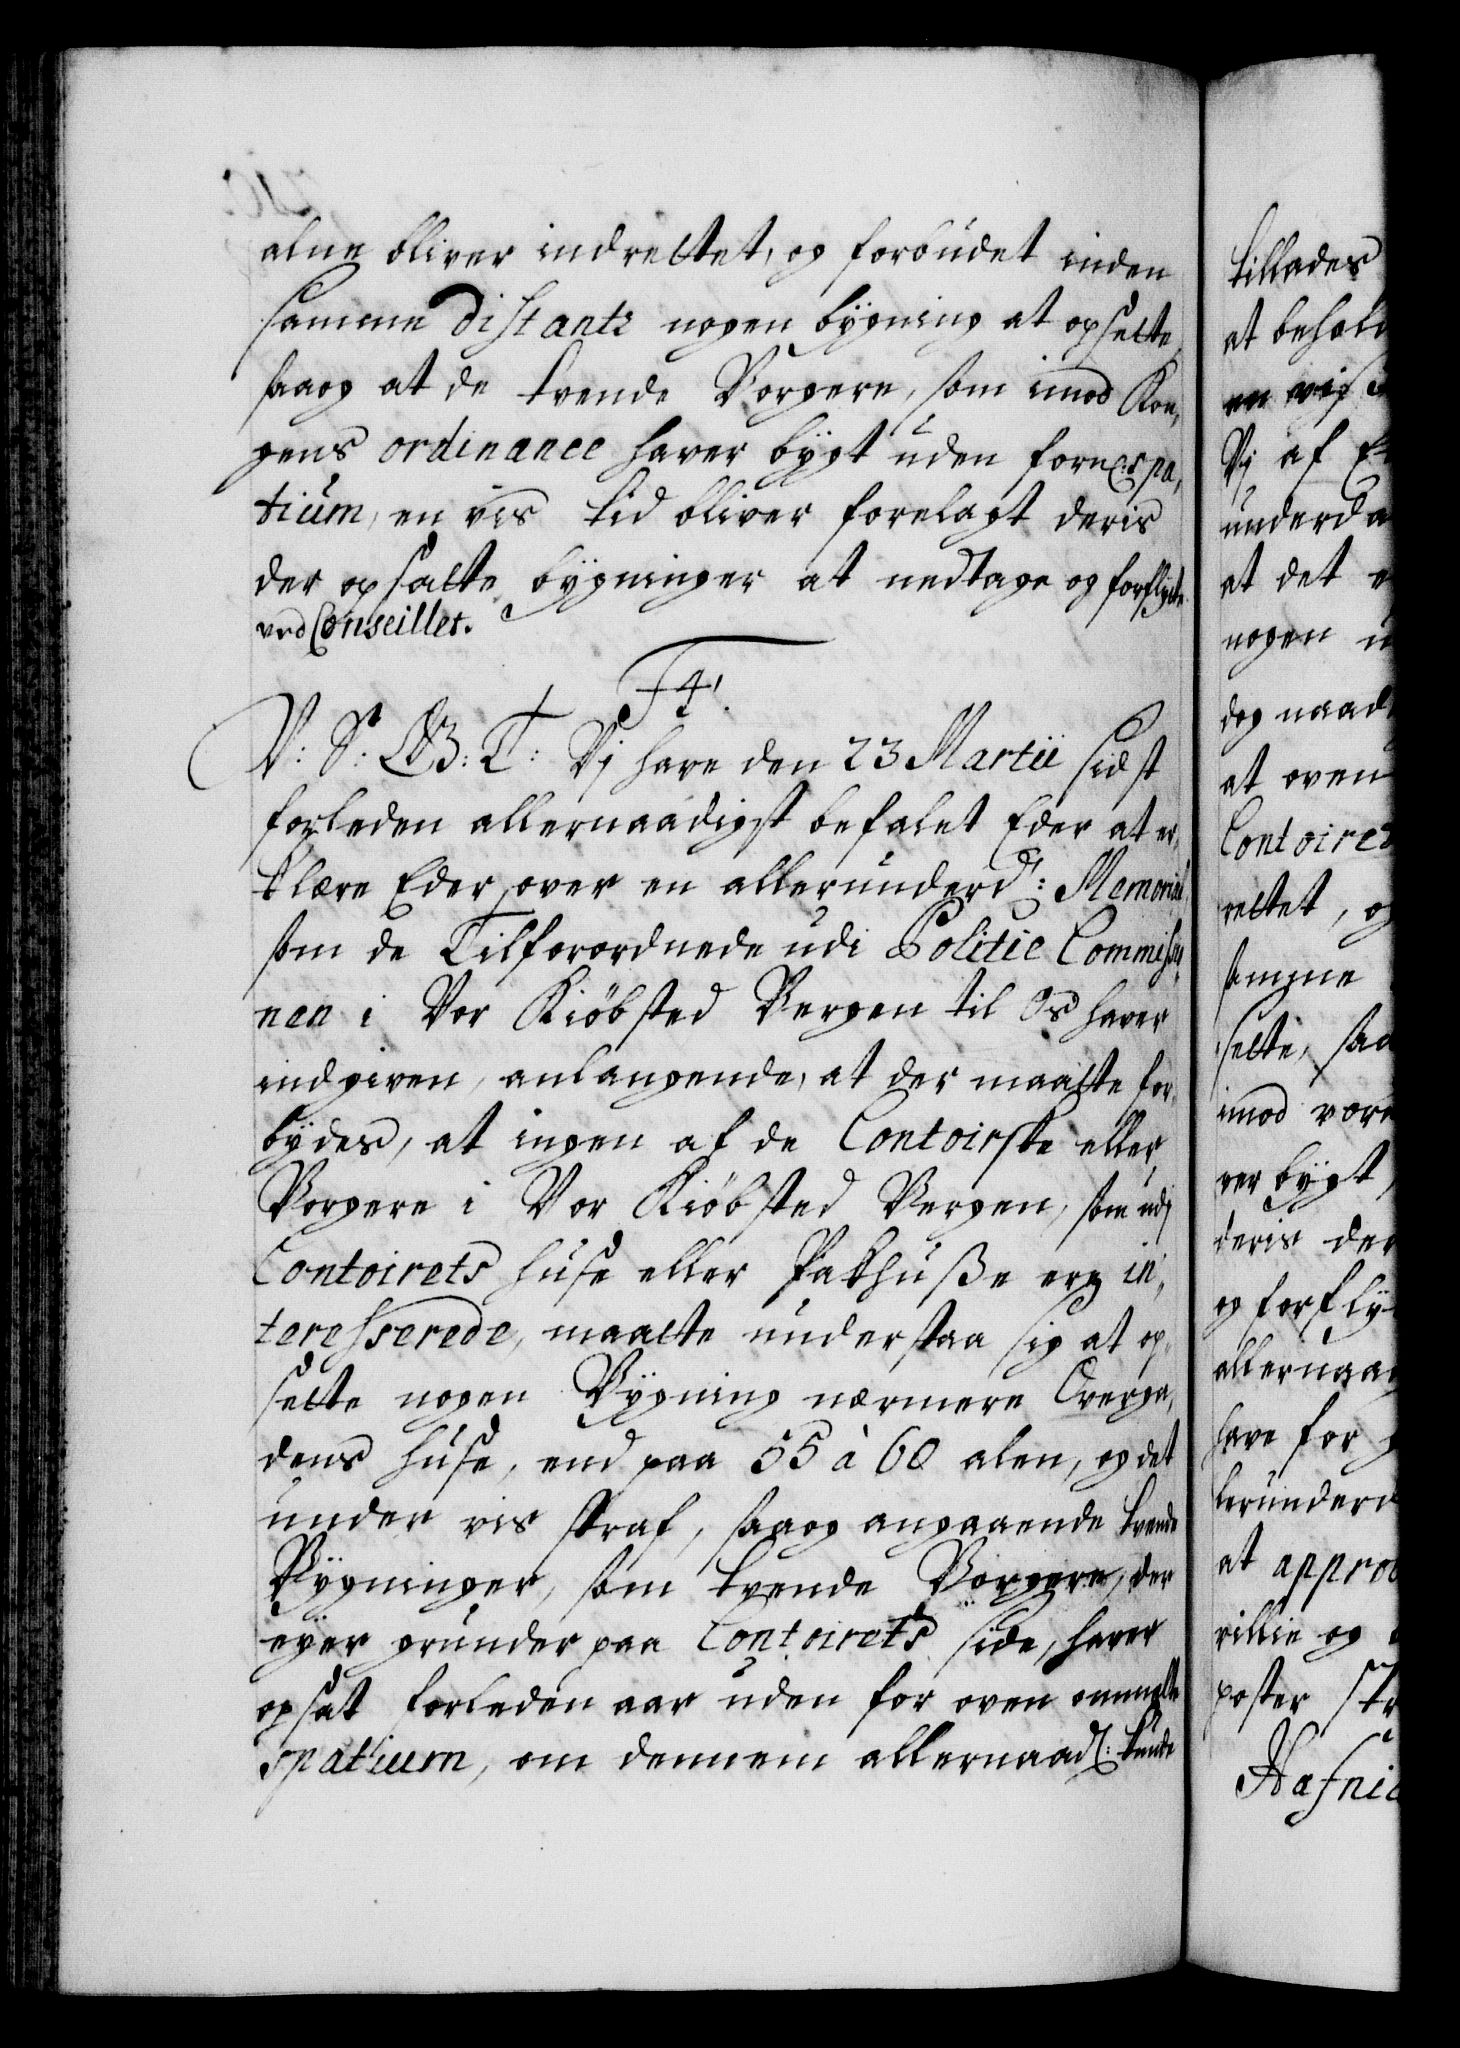 alne bliver indrettet, og forbudet inden
samme distants nogen bygning at opsette,
saaog at de tvende Borgere, som imod Kon,
gens ordinance haver bygt uden forne: spa,
tium, en vis tid bliver forelagt deris
der opsatte bygninger at nedtage og forflytte
ved Conseillet.
F4.
V: S: G: T: Vi have den 23 Martii sidst
forleden allernaadigst befalet Eder at er,
klære Eder over en allerunderd: Memorial
som de Tilforordnede udi Politie Commissio,
nen i Vor Kiøbsted Bergen til Os haver
indgiven, anlangende, at der maatte for,
bydes, at ingen af de Contoirske eller
Borgere i Vor Kiøbsted Bergen, som udj
Contoirets huse eller Pakhuße ere in,
teresserede, maatte understaa sig at op,
sette nogen Bygning nærmere Overga,
dens huse, end paa 55 à 60 alen, og det
under vis straf, saaog angaaende tvende
Bygninger, som tvende Borgere, der
eyer grunder paa Contoirets side, haver
opsat forleden aar uden for oven ommelte
spatium, om dennem allernaad: kunde
tillades
at behold
en vis
Vj af E
underda
at det
nogen
dog naad
at oven
Contoiret
rettet, og
samme
sette, saa
imod vor
ver bygt,
deris der
og forfly
allernaa
have for
lerunderd
at approb
villie og
poster
Hafnia